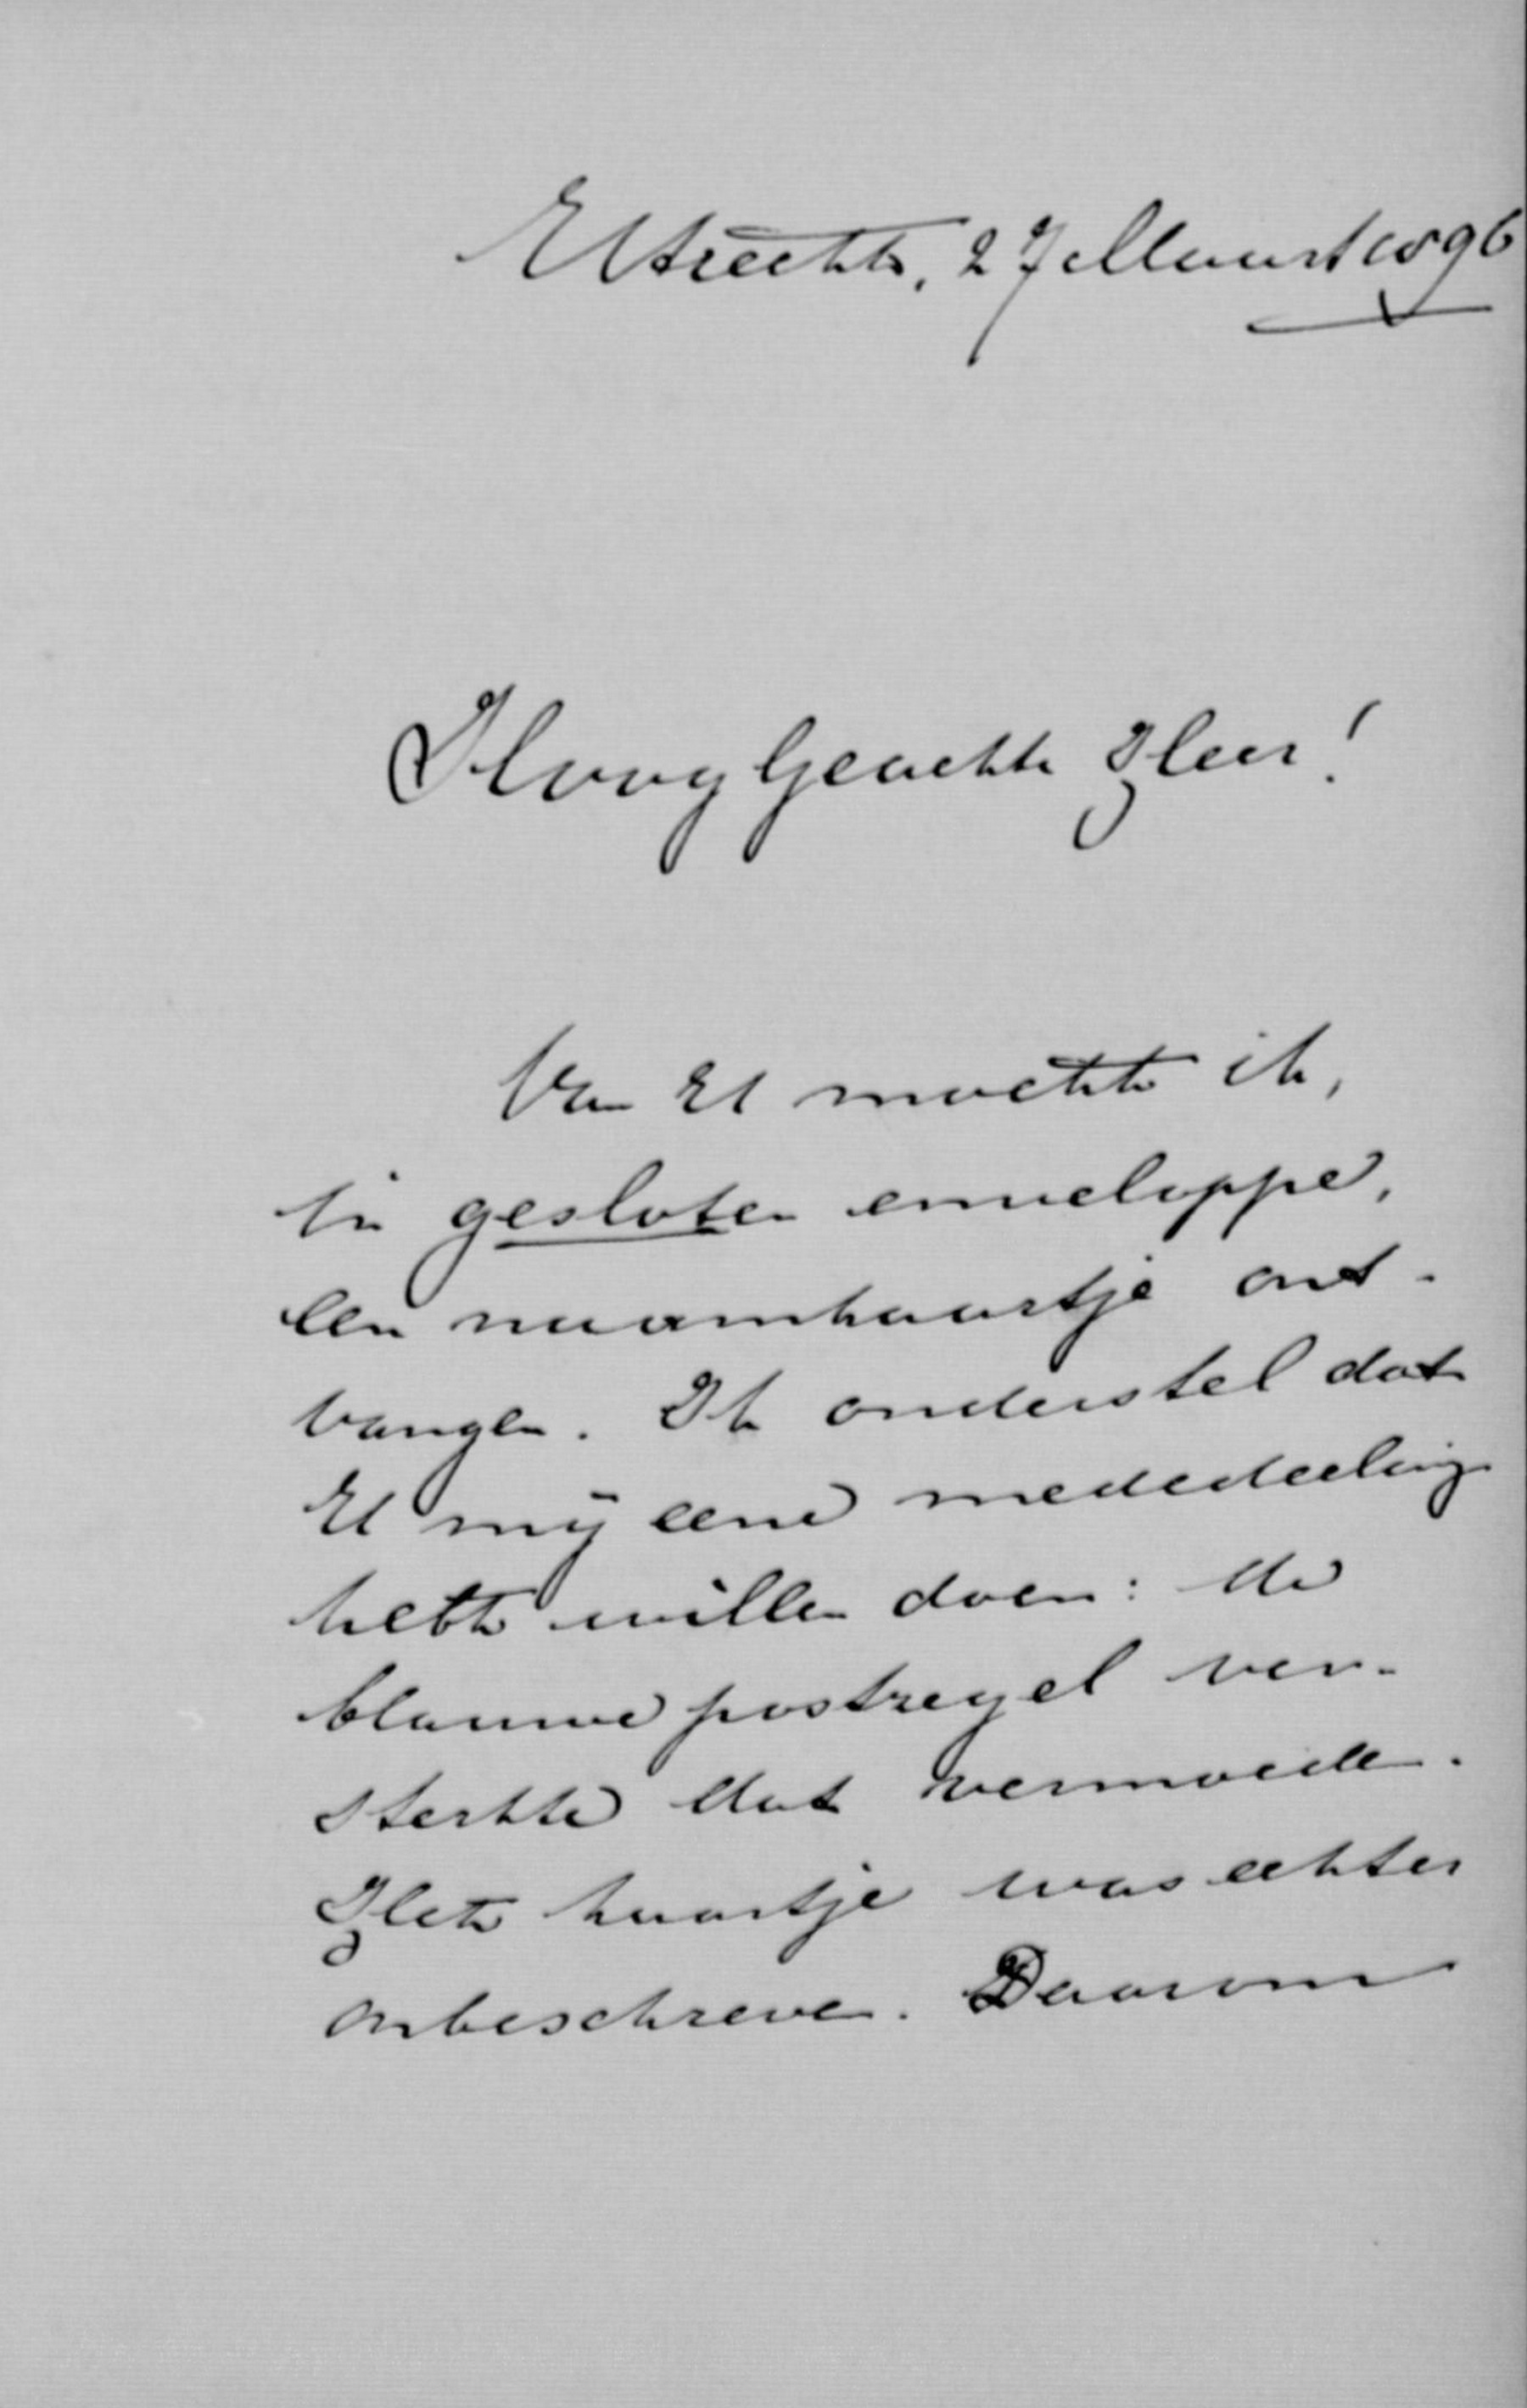 Utrecht, 27 Maart 1896
HoogGeachte Heer!
Van U mocht ik,
in gesloten enveloppe,
een naamkaartje ont-
vangen. Ik onderstel dat
U mij eene mededeeling
hebt willen doen: de
blauwe postzegel ver-
sterkte dat vermoeden.
Het kaartje was echter
onbeschreven. Daarom